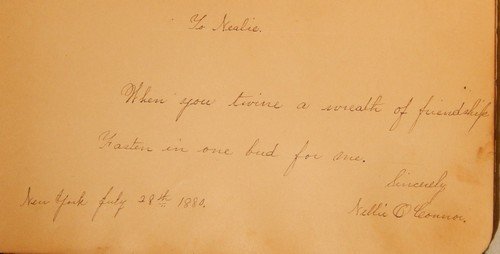 To Neslie.
When you twine a wreath of friendship
Fasten in one bud for me.
Sincerely
New York July 28th 1880.
Nellie O'Connor.